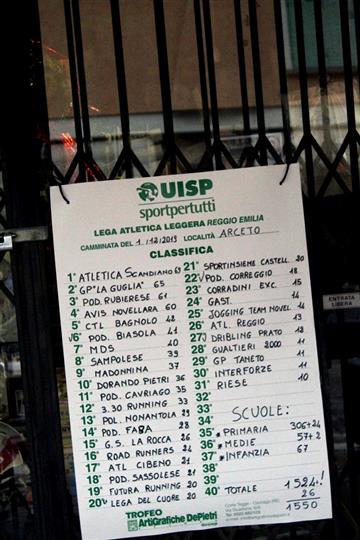 UISP
sportpertutti
LEGA ATLETICA LEGGERA REGGIO EMILIA
CAMMINATA DEL 1/12/2013 LOCALITÀ ARCETO
CLASSIFICA
1° ATLETICA SCANDIANO 69
2° GP"LA GUGLIA" 65
3° POD. RUBIERESE 61
4° AVIS NOVELLARA 60
5° CTL BAGNOLO 48
6° POD. BIASOLA 41
7° MDS 40
8° SAMPOLESE 39
9° MADONNINA 37
10° DORANDO PIETRI 36
11° POD. CAVRIAGO 35
12° 3.30 RUNNING 33
13° POL. NONANTOLA 29
14° POD. FABA 28
15° G.S. LA ROCCA 26
16° ROAD RUNNERS 24
17° ATL CIBENO 21
18° POD. SASSOLESE 21
19° FUTURA RUNNING 20
20° LEGA DEL CUORE 20
21° SPORTINSIEME CASTELL. 20
22° POD. CORREGGIO 18
23° CORRADINI EXC. 15
24° GAST. 14
25° JOGGING TEAM NOVEL. 14
26° ATL. REGGIO 13
27° DRIBLING PRATO 12
28° GUALTIERI 2000 11
29° GP TANETO 11
30° INTERFORZE 11
31° RIESE 10
32°
33°
34° SCUOLE:
35° PRIMARIA 306+24
36° MEDIE 57+2
37° INFANZIA 67
38°
39°
40° TOTALE 1524+
26
1550
TROFEO
ArtiGrafiche DePietri
ENTRATA
LIBERA